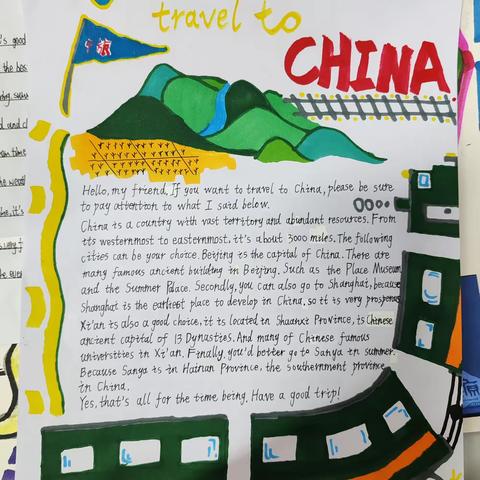 travel to
CHINA
Hello, my friend, If you want to travel to China, please be sure
to pay attention to what I said below.
China is a country with vast territory and abundant resources. From
its westernmost to easternmost, it's about 3000 miles. The following
cities can be your choice. Beijing is the capital of China. There are
many famous ancient building in Beijing. Such as the Place Museum
and the Summer Place. Secondly, you can also go to Shanghai, because
Shanghai is the earliest place to develop in China, so it is very prosperous
Xi'an is also a good choice, it is located in Shaanxi Province, is Chinese
ancient capital of 13 Dynasties. And many of Chinese famous
universities in Xi'an. Finally, you'd better go to Sanya in summer.
Because Sanya is in Hainan Province, the southernment province
in China.
Yes, that's all for the time being. Have a good trip!
's good
the
and
it's